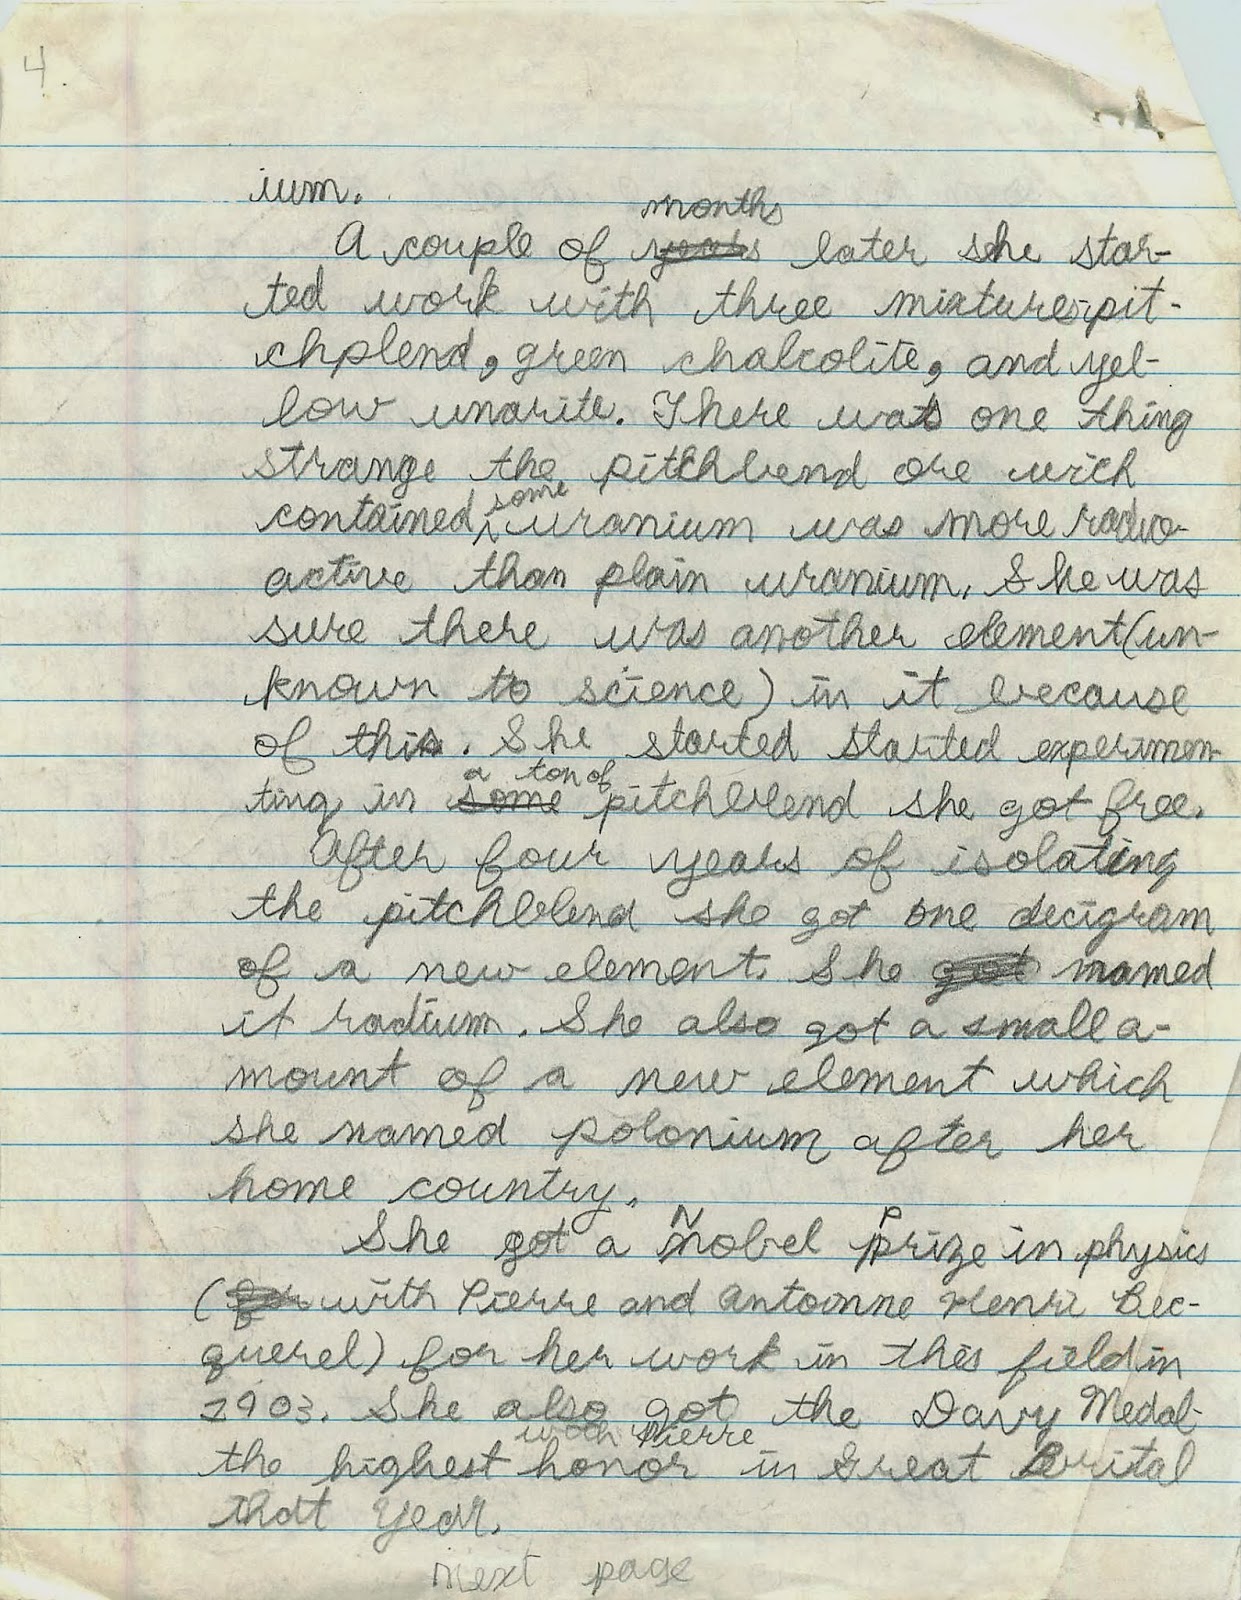 4.
ium.
months
A couple of years later she star-
ted work with three mixtures-pit-
chplend, green chalcolite, and yel-
low unarite. There was one thing
strange the pitchblend ore wich
some
contained uranium was more radio-
active than plain uranium. She was
sure there was another element(un-
known to science) in it because
of this. She started started experimen-
a ton of
ting in some pitchblend she got free.
After four years of isolating
the pitchblend she got one decigram
of a new element. She got named
it radium. She also got a small a-
mount of a new element which
she named polonium after her
home country.
N P
She got a nobel prize in physics
(with Pierre and Antoinne Henri Bec-
querel) for her work in this field in
1903. She also got the Davy Medal-
with Pierre
the highest honor in Great Brital
that year.
next page